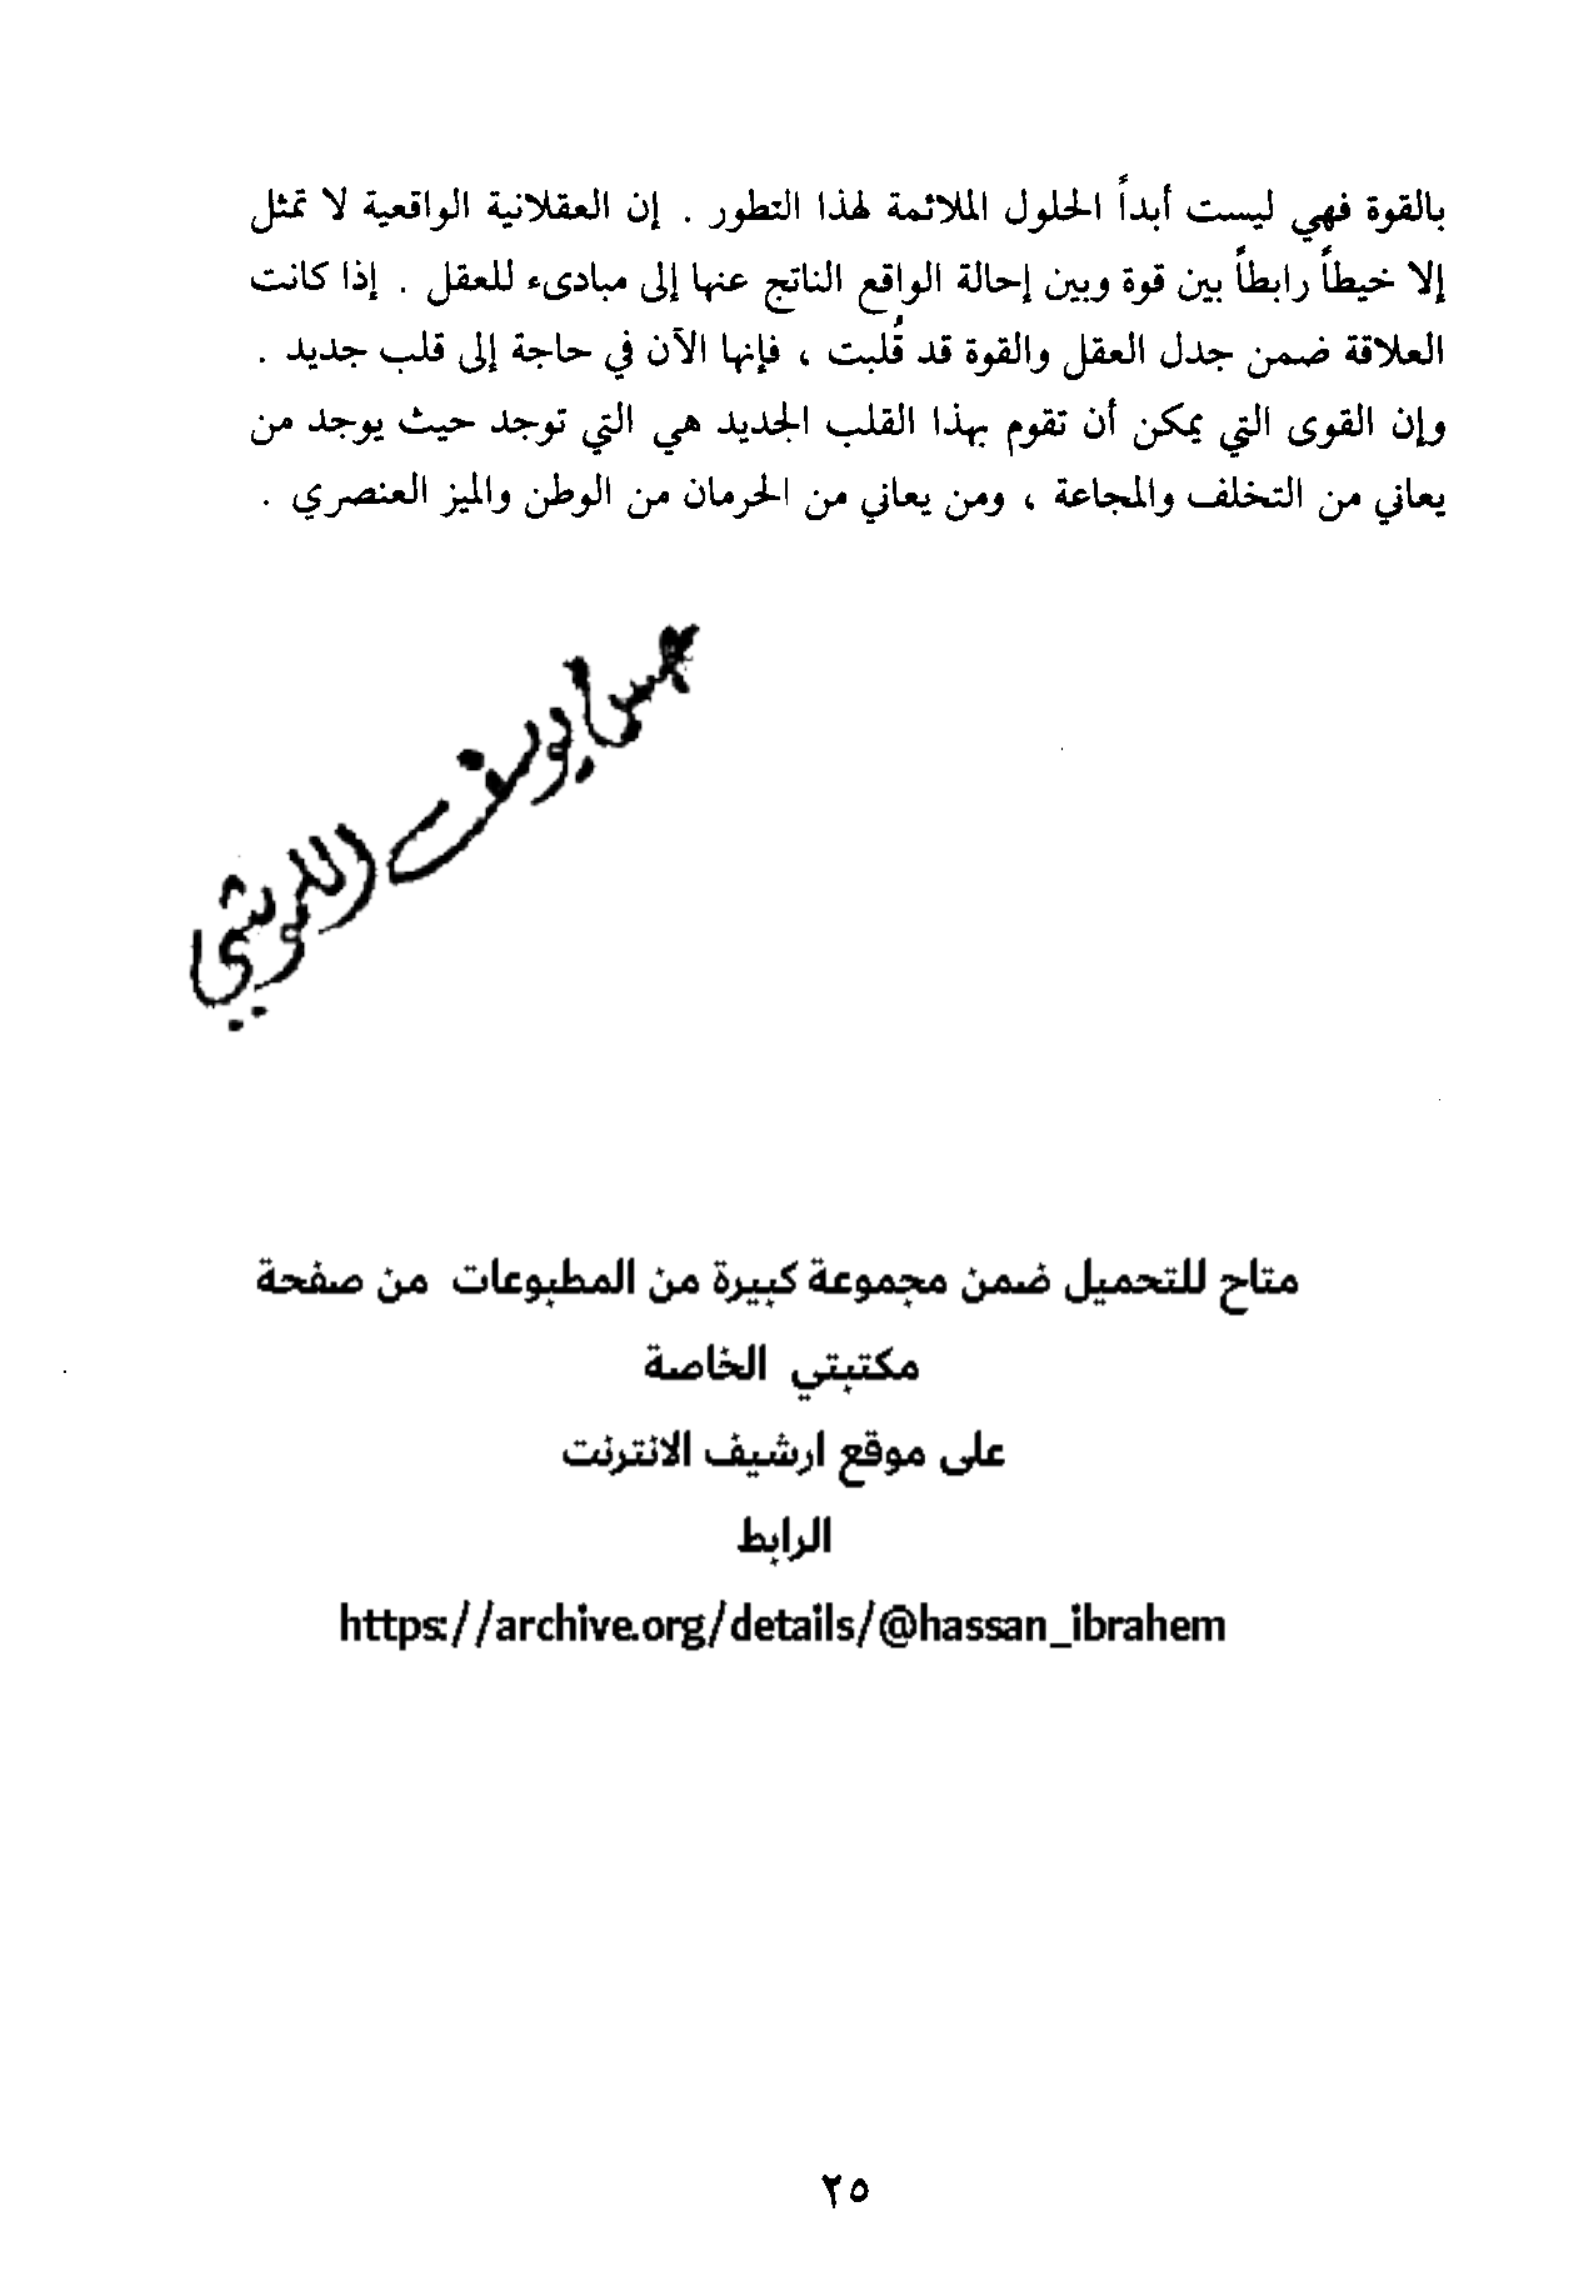 بالقوة فهي ليست أبداً الحلول الملائمة لهذا التطور . إن العقلانية الواقعية لا تمثل
إلا خيطاً رابطاً بين قوة وبين إحالة الواقع الناتج عنها إلى مبادىء للعقل . إذا كانت
العلاقة ضمن جدل العقل والقوة قد قُلبت ، فإنها الآن في حاجة إلى قلب جديد .
وإن القوى التي يمكن أن تقوم بهذا القلب الجديد هي التي توجد حيث يوجد من
يعاني من التخلف والمجاعة ، ومن يعاني من الحرمان من الوطن والميز العنصري .
يوسف
متاح للتحميل ضمن مجموعة كبيرة من المطبوعات من صفحة
مكتبتي الخاصة
على موقع ارشيف الانترنت
الرابط
https://archive.org/details/@hassan_ibrahem
٢٥